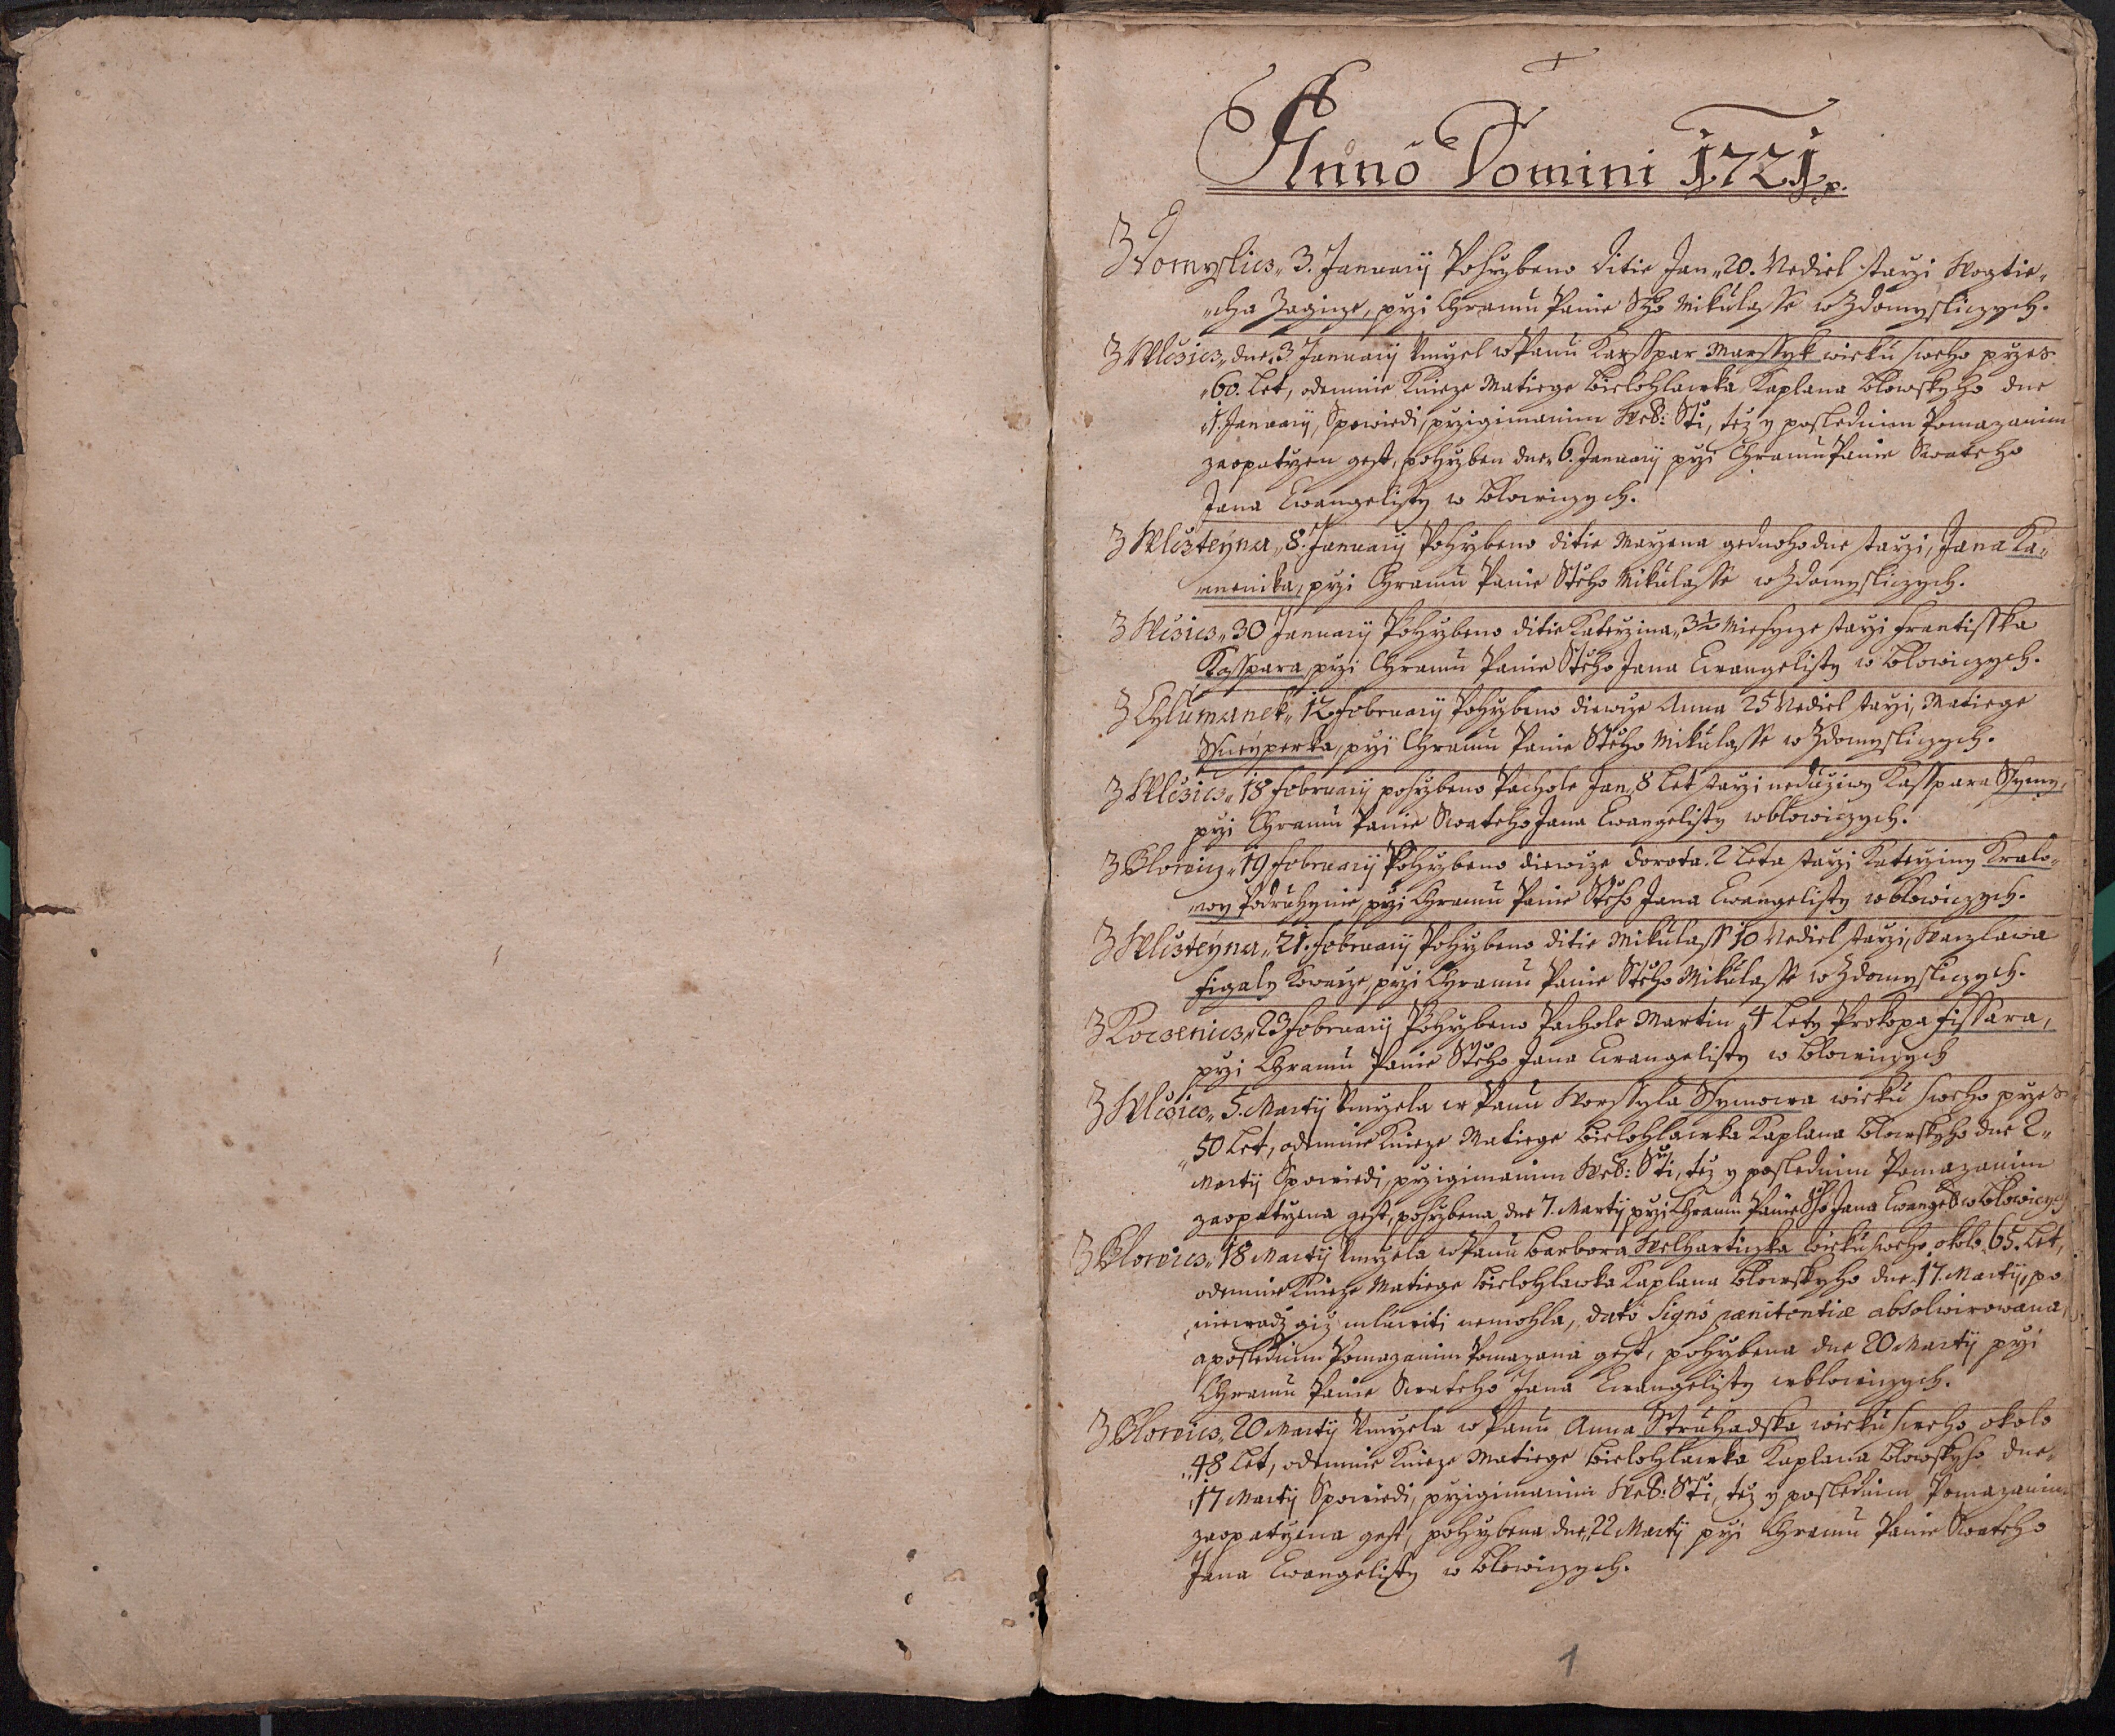 Anno Domini 1721 p.
Z Zdomyslicz„ 3. January Pohrzbeno ditie Jan„ 20. Nediel starzi Wogtie„
„cha Zagicze, przi Chramu Panie Sho Mikulasse w Zdomysliczych.
Z Wlczicz„ dne„ 3 January Umrzel w Panu Kassspar Marssyk wieku sweho przes
„60. Let, odemnie Knieze Matiege Bielohlawka Kaplana Blowskyho dne
„1. January, Spowiedi, przigimanim Web: Sti, tez y poslednim Pomazanim
zaopatrzen gest, pohrzben dne„ 6. January przi Chramu Panie Swateho
Jana Ewangelisty w Blowiczych.
Z Wlczteyna„ 8. January Pohrzbeno ditie Marzena gednoho dne starzi, Jana Ka„
„menika, przi Chramu Panie Steho Mikulasse w Zdomysliczych.
Z Wlczicz„ 30 January Pohrzbeno ditie Katerzina„ 3½ Miesycze starzi Frantisska
Kasspara przi Chramu Panie Steho Jana Ewangelisty w Blowiczych.
Z Chlumanek„ 12 February Pohrzbeno diewcze Anna 25 Nediel starzi, Matiege
Ssneyperka, przi Chramu Panie Steho Mikulasse w Zdomysliczych.
Z Wlczicz„ 18 February pohrzbeno Pachole Jan, 8 Let starzi neduziwy Kasspara Ssymy,
przi Chramu Panie Swateho Jana Ewangelisty w Blowiczych.
Z Blowicz„ 19 February Pohrzbeno diewcze Dorota 2 Leta starzi Katerziny Kralo„
„wy Podruhynie, przi Chramu Panie Steho Jana Ewangelisty w Blowiczych.
Z Wlczteyna„ 21. February Pohrzbeno ditie Mikulass 10 Nediel starzi, Waczlawa
Figaly Kowarze, przi Chramu Panie Steho Mikulasse w Zdomysliczych.
Z Koczenicz„ 23 February Pohrzbeno Pachole Martin „4 Lety Prokopa Fissara,
przi Chramu Panie Steho Jana Ewangelisty w Blowiczych
Z Wlczicz„ 5. Marty Umrzela w Panu Worssyla Ssymowa wieku sweho przes
„50 Let, odemnie Knieze Matiege Bielohlawka Kaplana Blowskyho dne 2„
Marty Spowiedi, przigimanim Web: Sti, tez y poslednim Pomazanim
zaopatrzena gest, pohrzbena dne 7. Marty przi Chramu Panie Sho Jana Ewange: w Blowiczych
Z Blowicz„ 18 Marty Umrzela w Panu Barbora Welharticzka wieku sweho okolo 65. Let,
odemnie Knieze Matiege Bielohlawka Kaplana Blowskyho dne 17. Marty, po
niewadz giz mluwiti nemohla, dato Signo pænitentiæ absolwirowana,
a poslednim Pomazanim Pomazana gest, pohrzbena dne 20 Marty przi
Chramu Panie Swateho Jana Ewangelisty w Blowiczych.
Z Blowicz„ 20 Marty Umrzela w Panu Anna Struhadska wieku sweho okolo
„48 Let, odemnie Knieze Matiege Bielohlawka Kaplana Blowskyho dne„
„17 Marty Spowiedi, przigimanim Web: Sti, tez y poslednim Pomazanim
zaopatrzena gest, pohrzbena dne„ 22 Marty przi Chramu Panie Swateho
Jana Ewangelisty w Blowiczych.
1